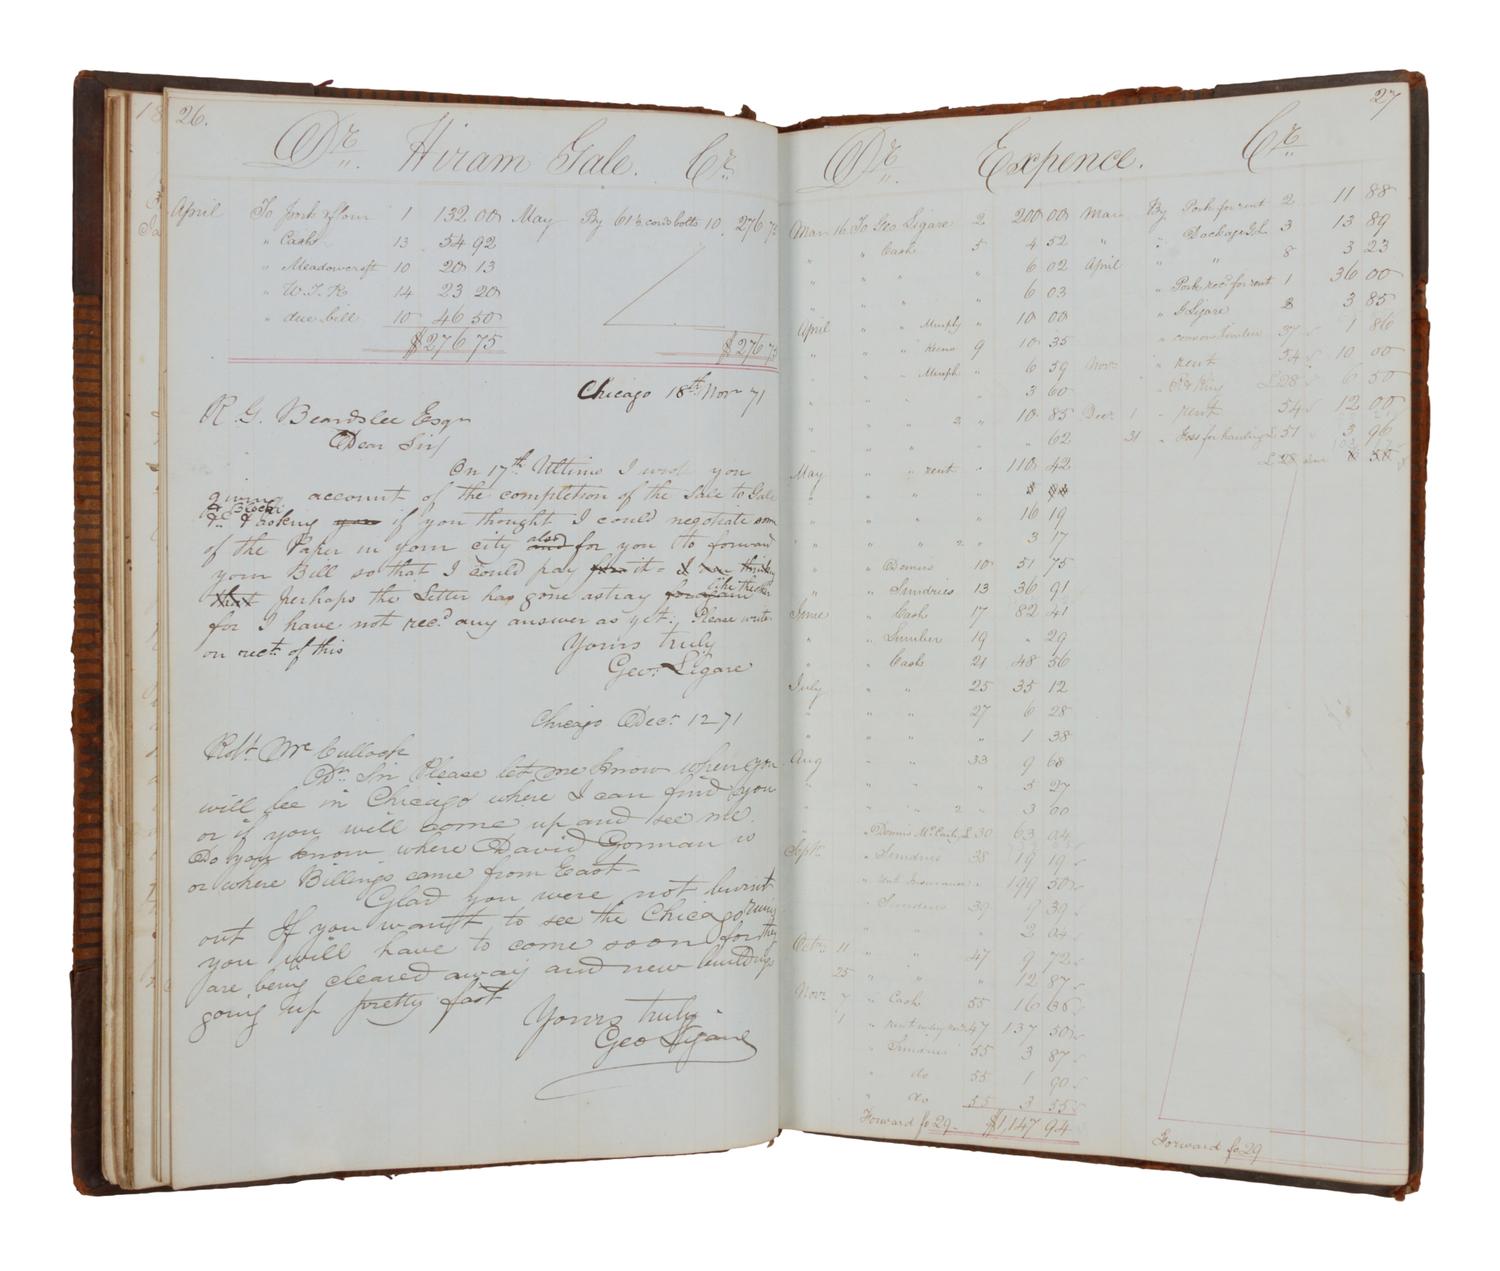 26.
Dr. Hiram Gale. Cr.
April To pork & flour 1 132 00 May By 61½ cords bolts 10 276 75
" Cash 13 54 92
" Meadowcroft 10 20 13
" W.T.R 14 23 20
" due bill 10 46 50
$276 75 $276 75
Chicago 18th Nov 71
R. G. Beardslee Esqr
Dear Sir
On 17th Ultimo I you
giving account of the completion of the sale to Gale
& Block
& asking if you thought I could negotiate some
of the Paper in your city also for you to forward
your Bill so that I could pay it - I
perhaps the Letter has gone astray like the other
for I have not recd. any answer as yet. Please write
on rect. of this
Yours truly
Geo. Ligare
Chicago Decr. 12 71
Robt. Mc Cullock
Dr. Sir Please let me know when you
will be in Chicago where I can find you
or if you will come up and see me.
Do you know where David Gorman is
or where Billings came from East -
Glad you were not burnt
out If you want to see the Chicago ruins
you will have to come soon for they
are being cleared away and new buildings
going up pretty fast
Yours truly
Geo Ligare
27
Dr. Expence. Cr.
Mar 16 To Geo Ligare 2 200 00 Mar By Pork for rent 2 11 88
" " Cash 5 4 52 " " 3 13 89
" " " 6 02 April " " 8 3 23
" " " 6 03 " Pork recd. for rent 1 36 00
April " " Murphy " 10 00 " G Ligare 3 85
" " " 9 10 35 " 37 1 86
" " " Murph " 6 59 Novr. " rent 54 10 00
" " " 3 60 " L 28 6 50
" " " 2 " 10 85 Decr. 1 " rent 54 12 00
" " " " 62 31 " Foss for hauling L 51 3 96
May " " rent " 110 42 L 28
" " " "
" " " " 16 19
" " " 2 " 3 17
" " Dennis 10 51 75
" " Sundries 13 36 91
June " Cash 17 82 41
" " Lumber 19 " 29
" " Cash 21 48 56
July " " 25 35 12
" " " 27 6 28
" " " 1 38
Aug " " 33 9 68
" " " 5 27
" " " 2 " 3 00
" " Dennis McCarty L 30 63 04
Septr. " Sundries 38 19 19
" Insurance " 199 50
" Sundries 39 9 39
" " " 2 04
Octr. 11 " " 47 9 72
25 " " " 12 87
Novr. 7 " Cash 55 16 36
" 1 " rent 47 137 50
" Sundries 55 3 87
" do 55 1 90
" do 55 3 55
Forward fo 29 - $1,147 94
Forward fo 29